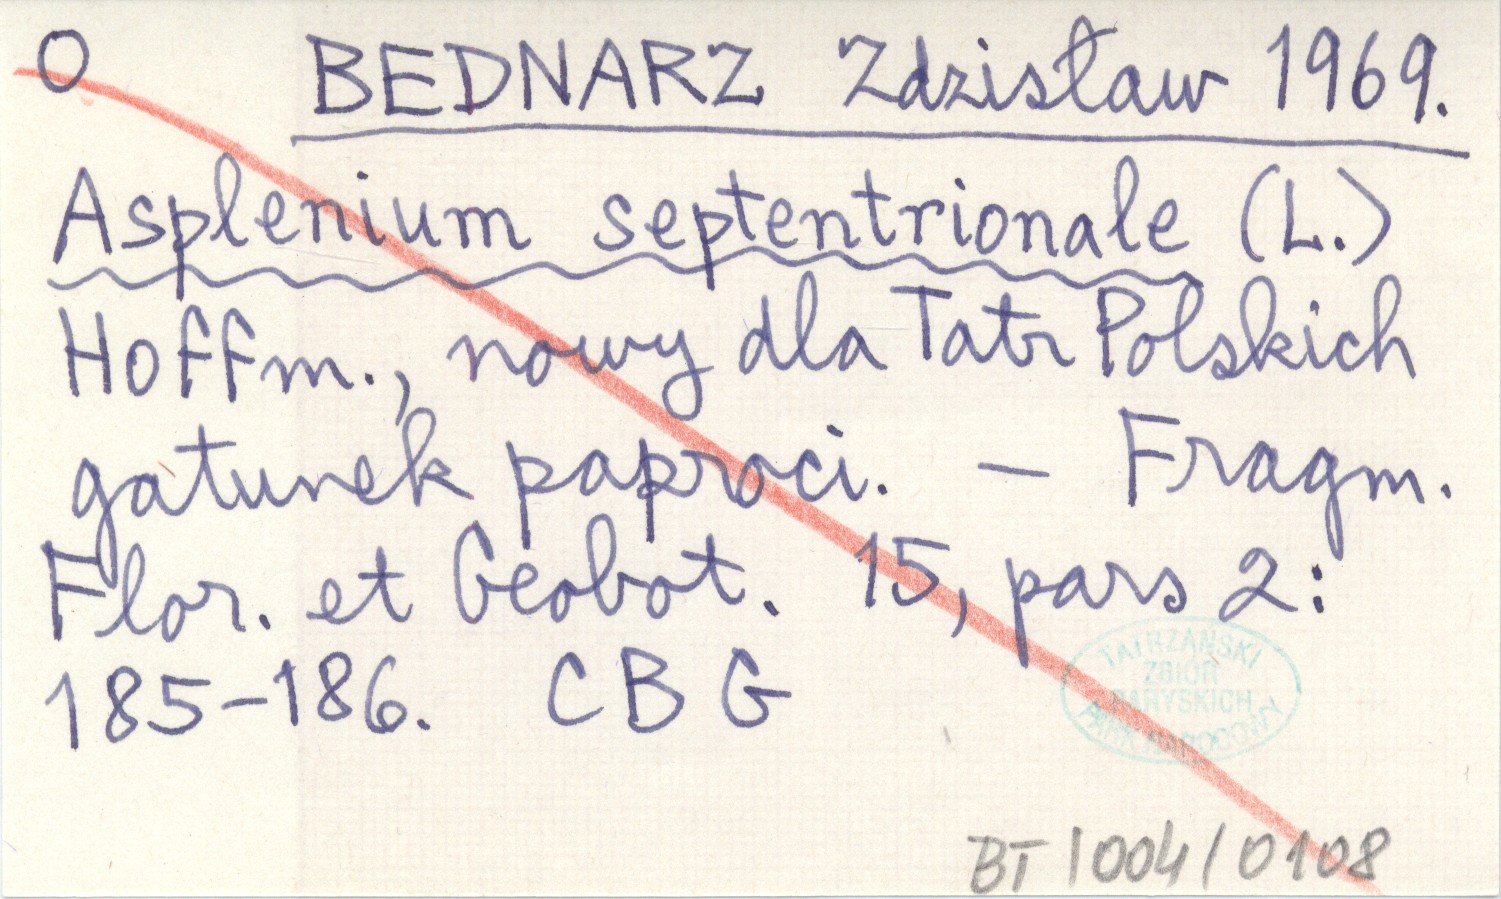 O BEDNARZ Zdzisław 1969.
Asplenium septentrionale (L.)
Hoffm., nowy dla Tatr Polskich
gatunek paproci. — Fragm.
Flor. et Geobot. 15, pars 2:
185-186. CBG
TATRZAŃSKI
ZBIÓR
PARYSKICH
PARK NARODOWY
BT 1004/0108